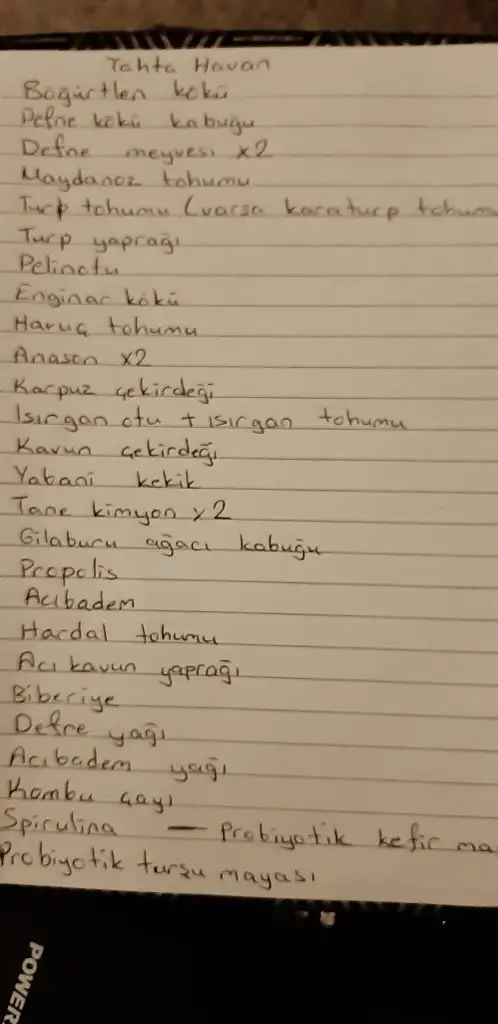 Tahta Havan
Bögürtlen kökü
Defne kökü kabuğu
Defne meyvesi x2
Maydanoz tohumu
Turp tohumu (varsa karaturp tohum
Turp yaprağı
Pelinotu
Enginar kökü
Havuç tohumu
Anason x2
Karpuz çekirdeği
Isırgan otu + ısırgan tohumu
Kavun çekirdeği
Yabani kekik
Tane kimyon x2
Gilaburu ağacı kabuğu
Propolis
Acıbadem
Hardal tohumu
Acı kavun yaprağı
Biberiye
Defne yağı
Acıbadem yağı
Kombu çayı
Spirulina — Probiyotik kefir ma
Probiyotik turşu mayası
POWER